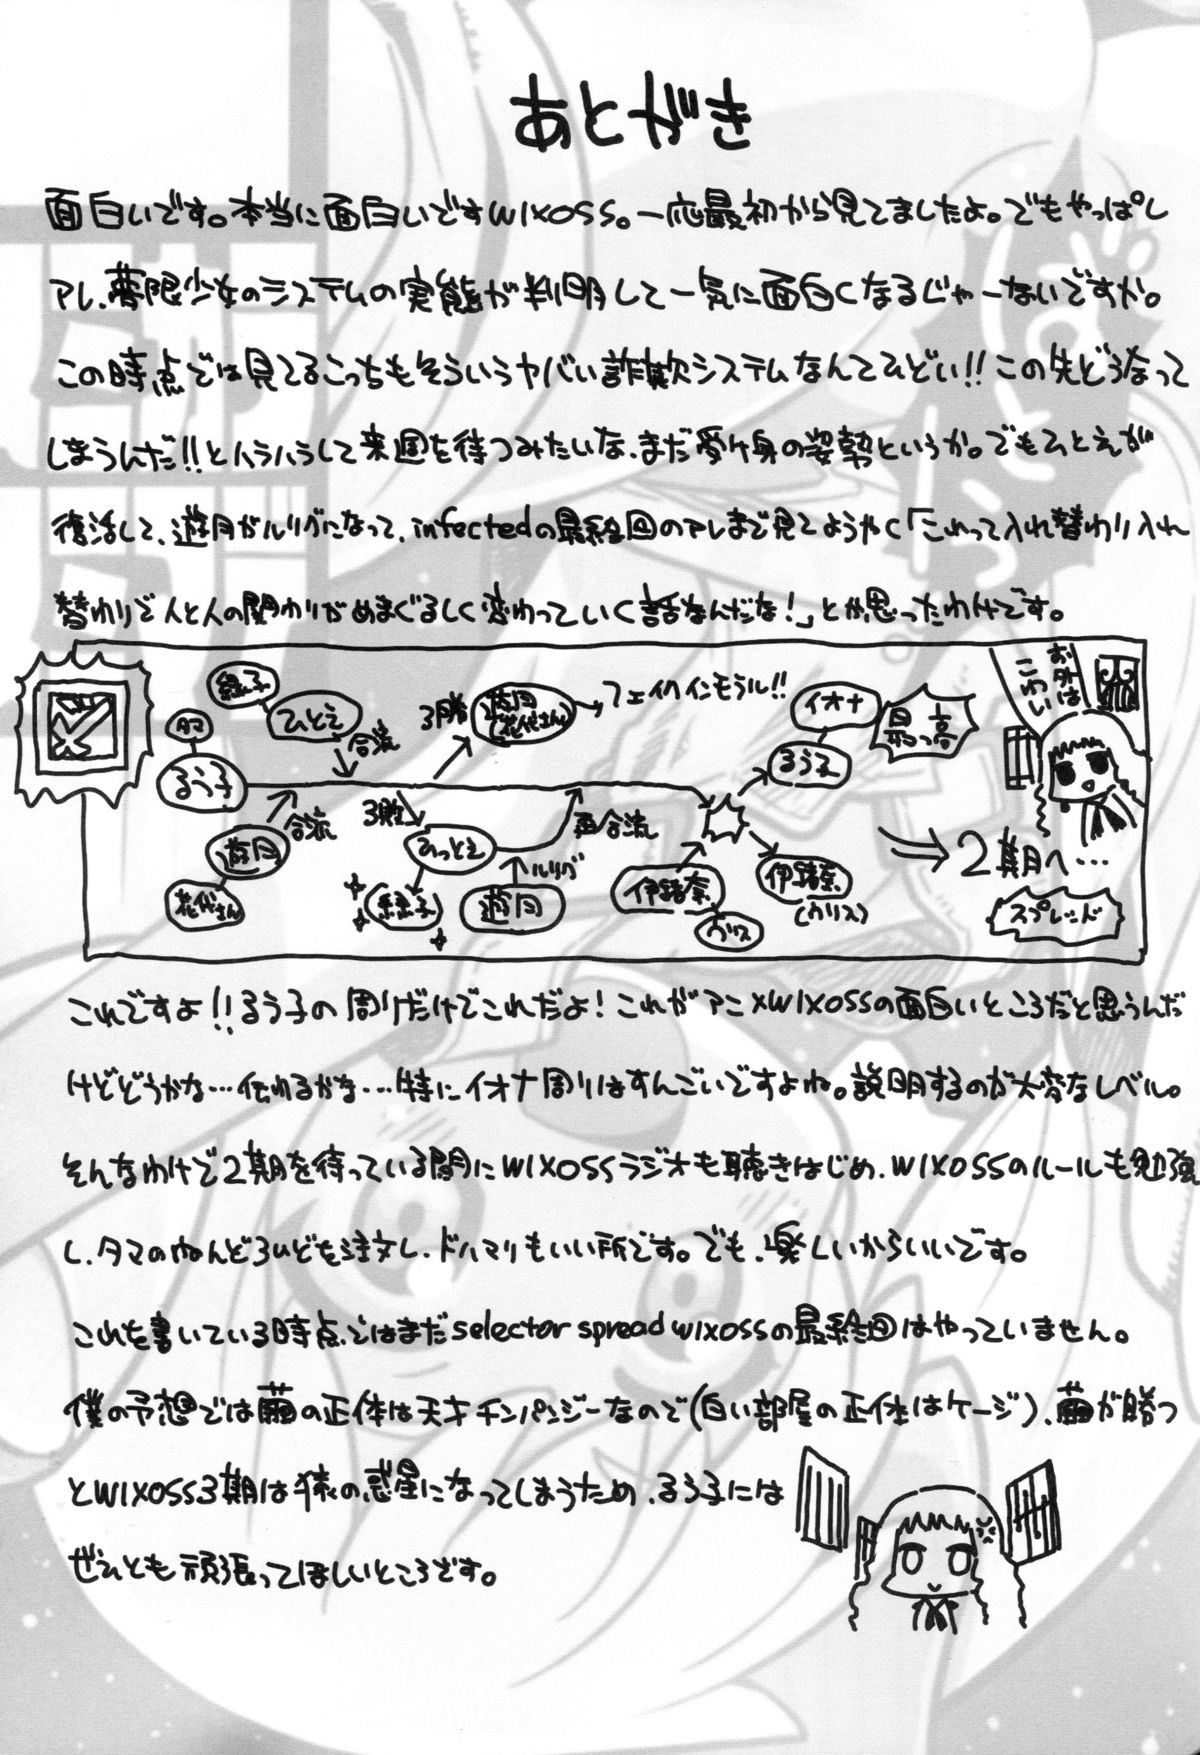 あとがき
面白いです。本当に面白いですWIXOSS。一応最初から見てましたよ。でもやっぱし
アレ、夢限少女のシステムの実態が判明して一気に面白くなるじゃーないですか。
この時点では見てるこっちもそういうヤバい詐欺システムなんてひどい!!この先どうなって
しまうんだ!!とハラハラして来週を待つみたいな、まだ受ケ身の姿勢というか。でもひとえが
復活して、遊月がルリグになって、infectedの最終回のアレまで見てようやく「これって入れ替わり入れ
替わりで人と人の関わりがめまぐるしく変わっていく話なんだな!」とか思ったわけです。
タマ
るう子
緑子
ひとえ
合流
花代さん
遊月
合流
3勝
遊月
(花代さん)
フェイクインモラル!!
3敗
ひとえ
緑子
遊月
ルリグ
再合流
伊緒奈
ウリス
イオナ
るう子
最っ高
伊緒奈
(ウリス)
お外は
こわい
2期へ…
スプレッド
これですよ!!るう子の周りだけでこれだよ!これがアニメWIXOSSの面白いところだと思うんだ
けどどうかな…伝わるかな…特にイオナ周りはすんごいですよね。説明するのが大変なレベル。
そんなわけで2期を待っている間にWIXOSSラジオも聴きはじめ、WIXOSSのルールも勉強
し、タマのねんどろいどを注文し、ドハマりもいい所です。でも、楽しいからいいです。
これを書いている時点ではまだselector spread wixossの最終回はやっていません。
僕の予想では繭の正体は天才チンパンジーなので(白い部屋の正体はケージ)、繭が勝つ
とWIXOSS3期は猿の惑星になってしまうため、るう子には
ぜひとも頑張ってほしいところです。